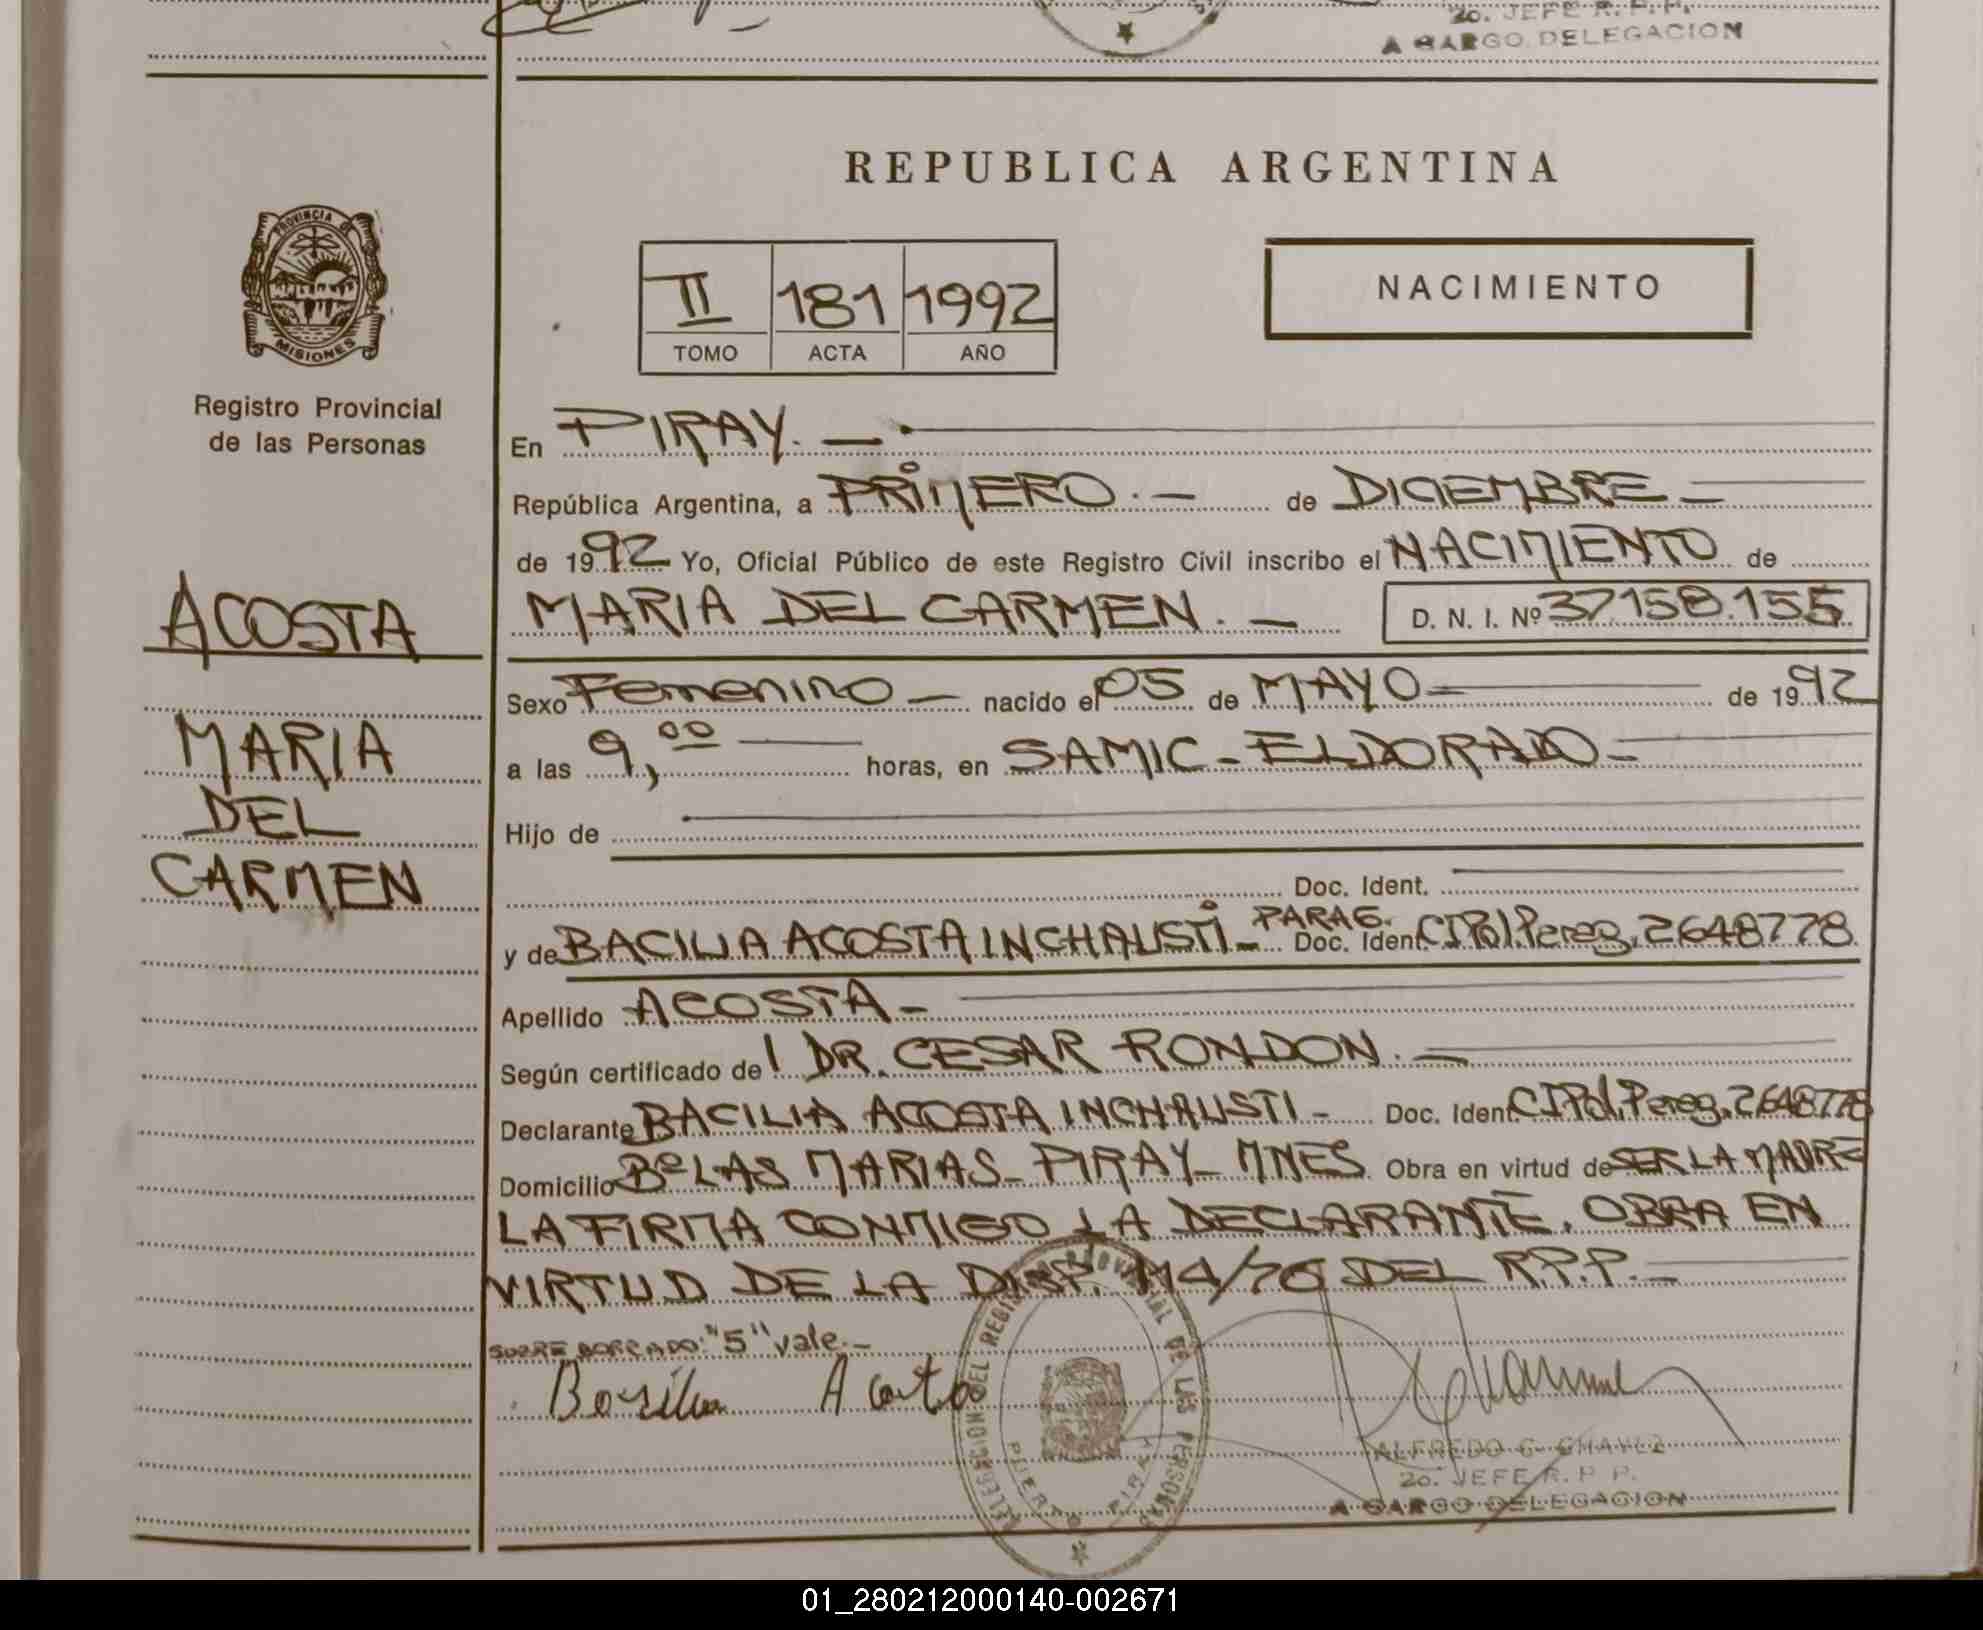 2o. JEFE R. P. P.
A CARGO DELEGACION
REPUBLICA ARGENTINA
PROVINCIA DE
MISIONES
Registro Provincial
de las Personas
II 181 1992
TOMO ACTA AÑO
NACIMIENTO
ACOSTA
MARIA
DEL
CARMEN
En PIRAY. —
República Argentina, a PRIMERO. — de DICIEMBRE —
de 1992 Yo, Oficial Público de este Registro Civil inscribo el NACIMIENTO de
MARIA DEL CARMEN. — D. N. I. Nº 37158.155
Sexo Femenino — nacido el 05 de MAYO — de 1992
a las 9,00 — horas, en SAMIC - ELDORADO —
Hijo de
Doc. Ident.
y de BACILIA ACOSTA INCHAUSTI — PARAG. Doc. Ident. CIPol. Pereg. 2648778
Apellido ACOSTA —
Según certificado de l DR. CESAR RONDON. —
Declarante BACILIA ACOSTA INCHAUSTI — Doc. Ident. CIPol. Pereg. 2648778
Domicilio Bº LAS MARIAS - PIRAY - MNES Obra en virtud de SER LA MADRE
LA FIRMA CONMIGO LA DECLARANTE. OBRA EN
VIRTUD DE LA DISP. 114/76 DEL R.P.P. —
SOBRE BORRADO: "5" vale. —
Acosta
DELEGACION DEL REGISTRO PROVINCIAL DE LAS PERSONAS
PUERTO PIRAY
ALFREDO G. CHAVEZ
2o. JEFE R. P. P.
A CARGO DELEGACION
01_280212000140-002671